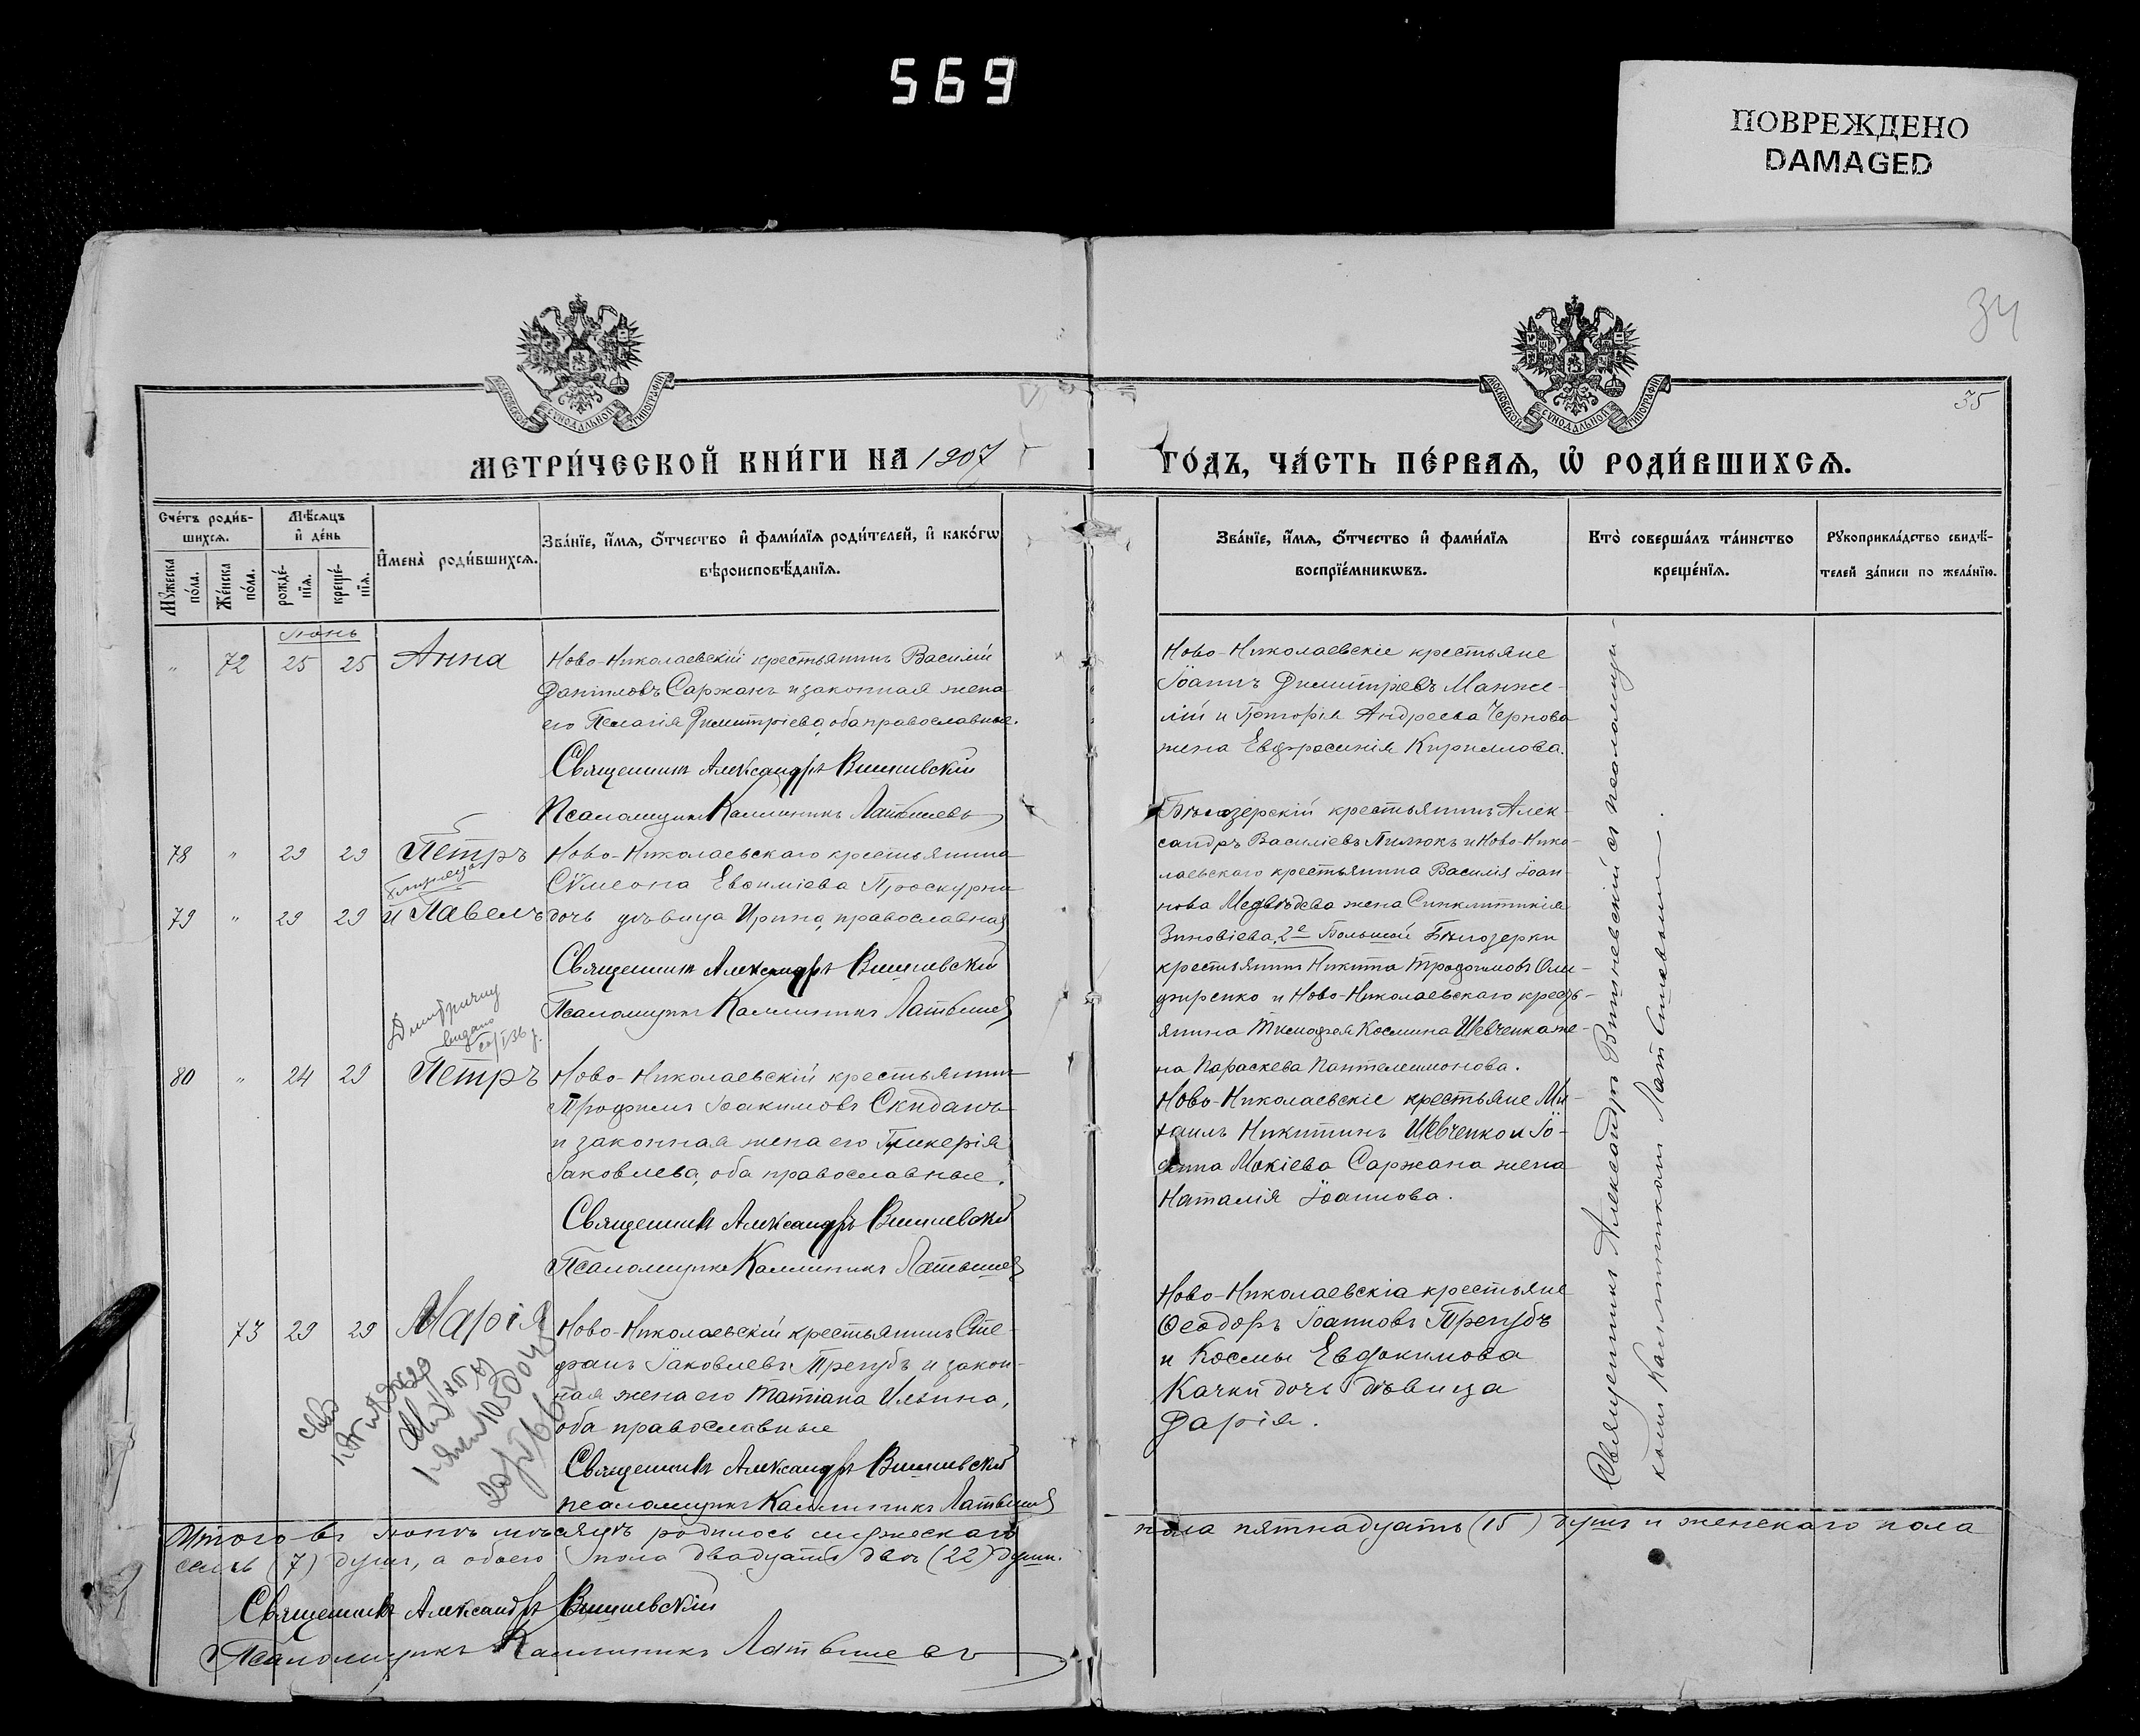 569
ПОВРЕЖДЕНО
DAMAGED
34
35
МОСКОВСКОЙ СѴНОДАЛЬНОЙ ТИПОГРАФІИ
МОСКОВСКОЙ СѴНОДАЛЬНОЙ ТИПОГРАФІИ
МЕТРИ́ЧЕСКОЙ КНИ́ГИ НА 1907
ГО́ДЪ, ЧА́СТЬ ПЕ́РВАѦ, Ѡ҆ РОДИ́ВШИХСѦ.
Сче́тъ роди́в-
шихсѧ.
Мꙋжеска по́ла.
Же́нска по́ла.
Мѣ́сѧцъ
и҆ де́нь
рожде́-
нїѧ.
креще́-
нїѧ.
И҆мена̀ роди́вшихсѧ.
Зва́нїе, и҆́мѧ, ѻ҆́тчество и҆ фами́лїѧ роди́телей, и҆ како́гѡ
вѣроисповѣ́данїѧ.
Зва́нїе, и҆́мѧ, ѻ҆́тчество и҆ фами́лїѧ
воспрїе́мникѡвъ.
Кто̀ соверша́лъ та́инство
креще́нїѧ.
Рꙋкоприкла́дство свидѣ́-
телей за́писи по жела́нїю.
Іюнь
" 72 25 25 Анна
Ново-Николаевскій крестьянинъ Василій
Даніиловъ Саржанъ и законная жена
его Пелагія Димитріева, оба православные.
Священникъ Александръ Вишневскій
Псаломщикъ Каллиникъ Латышевъ
Ново-Николаевскіе крестьяне
Іоаннъ Димитріевъ Манже-
лій и Григорія Андреева Чернова
жена Евфросинія Кириллова.
78 " 29 29 Петръ
Близнецы
79 " 29 29 и Павелъ
Ново-Николаевскаго крестьянина
Сѵмеона Евѳиміева Проскурни
дочь дѣвица Ирина, православная
Священникъ Александръ Вишневскій
Псаломщикъ Каллиникъ Латышевъ
Бѣлозерскій крестьянинъ Алек-
сандръ Василіевъ Пилюкъ и Ново-Нико-
лаевскаго крестьянина Василія Іоан-
нова Медвѣдева жена Синклитикія
Зиновіева, 2е Большой Бѣлозерки
крестьянинъ Никита Трофимовъ
и Ново-Николаевскаго кресть-
янина Тимофея Космина Шевченка же-
на Параскева Пантелеимонова.
80 " 24 29 Петръ
Ново-Николаевскій крестьянинъ
Трофимъ Іоакимовъ Скиданъ
и законная жена его Гликерія
Іаковлева, оба православные.
Священникъ Александръ Вишневскій
Псаломщикъ Каллиникъ Латышевъ
Ново-Николаевскіе крестьяне Ми-
хаилъ Никитинъ Шевченко и Іо-
анна Мокіева Саржана жена
Наталія Іоаннова.
73 29 29 Марія
Ново-Николаевскій крестьянинъ Сте-
фанъ Іаковлевъ Трегубъ и закон-
ная жена его Татіана Ильина,
оба православные
Священникъ Александръ Вишневскій
псаломщикъ Каллиникъ Латышевъ
Ново-Николаевскіа крестьяне
Ѳеодоръ Іоанновъ Трегубъ
и Космы Евдокимова
Качки дочь дѣвица
Дарія.
Священникъ Александръ Вишневскій съ псаломщи-
комъ Каллиникомъ Латышевымъ.
Итого въ іюнѣ мѣсяцѣ родилось мужескаго
пола пятнадцать (15) душъ и женскаго пола
семь (7) душъ, а обоего пола двадцать двѣ (22) души.
Священникъ Александръ Вишневскій
Псаломщикъ Каллиникъ Латышевъ